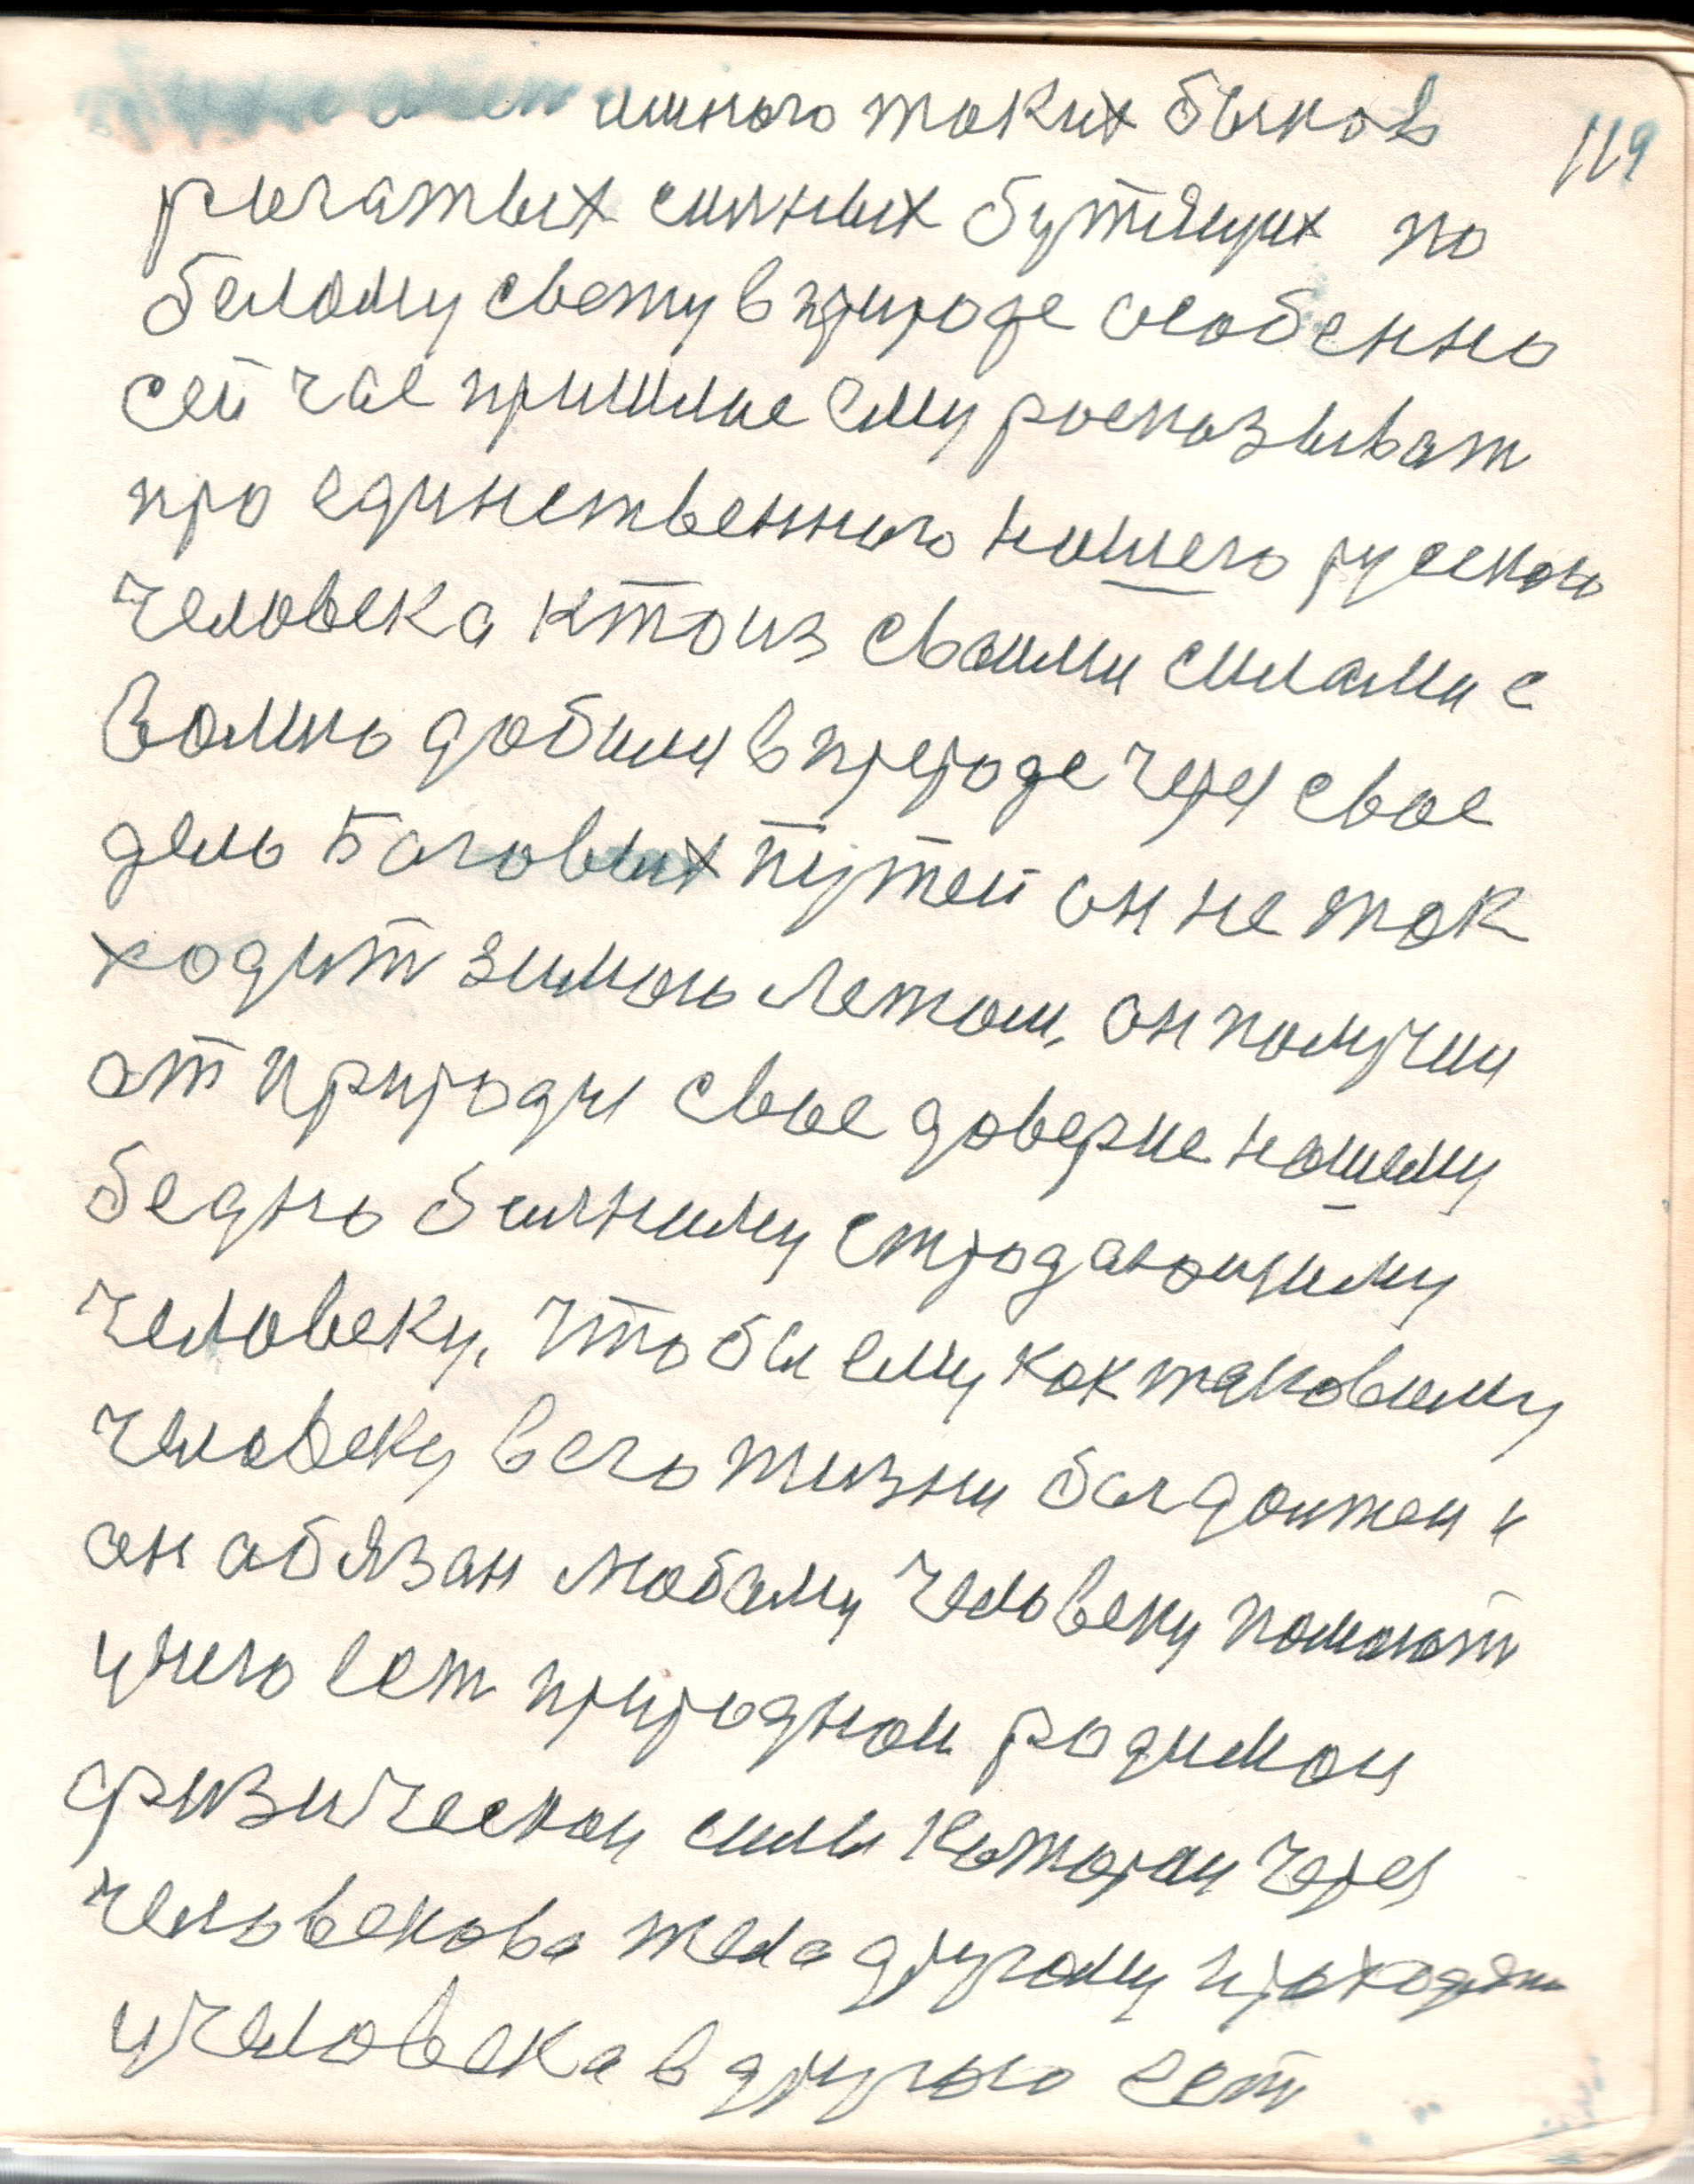 много таких быков 119
рогатых сильных бутящих по
белому свету в природе особенно
сей час пришлос ему росказыват
про единственного нашего руского
человека кто из своими силами с
волию добыли в природе через свое
дело Боговых путей он не так
ходит зимою летом, он получил
от природы свое доверие нашему
бедно больному страдающему
человеку, чтобы ему как таковому
человеку в его жизни был должен и
он обязан любому человеку помогат
у него ест природной родимой
физической силы которая через
человекова тела другому проходят
у человека в другого ест